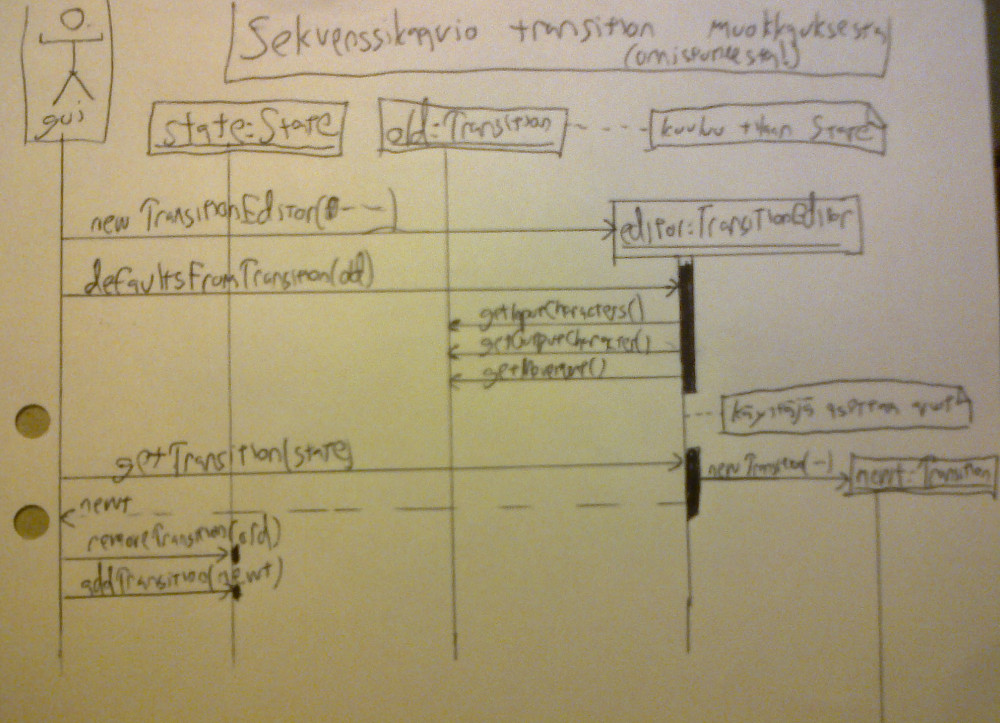 Sekvenssikaavio transition muokkauksesta
(omistuneesta!)
gui
state:State
old:Transition
kuuluu tilaan State
new TransitionEditor(---)
editor:TransitionEditor
defaultsFromTransition(old)
getInputCharacters()
getOutputCharacter()
getMovement()
käyttäjä asettaa arvot
getTransition(state)
new Transition(-)
newt:Transition
newt
removeTransition(old)
addTransition(newt)